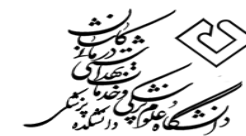 دانشگاه علوم پزشکی و خدمات
بهداشتی
درمانی
کاشان
دانشکده پزشکی